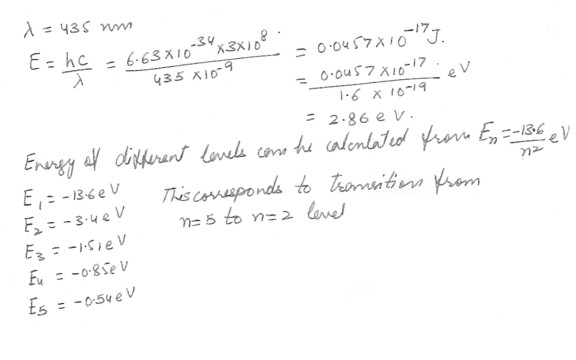 λ = 435 nm
E = hc/λ = 6.63 X 10^-34 X 3X10^8 / 435 X 10^-9 = 0.0457 X 10^-17 J.
= 0.0457 X 10^-17 / 1.6 X 10^-19 eV
= 2.86 eV.
Energy of different levels can be calculated from En = -13.6/n² eV
E1 = -13.6 eV
E2 = -3.4 eV
E3 = -1.51 eV
E4 = -0.85 eV
E5 = -0.54 eV
This corresponds to transition from
n=5 to n=2 level